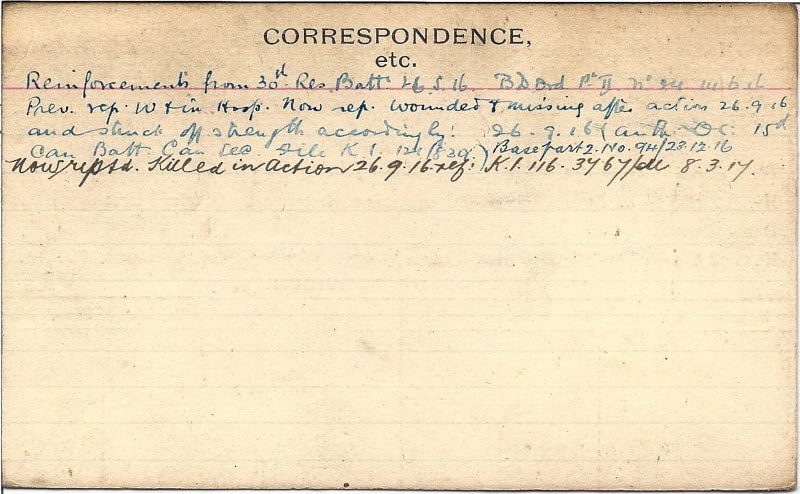 CORRESPONDENCE,
etc.
Reinforcements from 30th Res. Battn 26.5.16. B.D. Ord. Pt II No 14.6.16
Prev. rep. W & in Hosp. Now rep. wounded & missing after action 26.9.16
and struck off strength accordingly: 26.9.16 (auth. OC. 15th
Can Batt. Can Sec File K 1. 124/839) Base part 2. No. 94/23.12.16
Now reptd. Killed in Action 26.9.16. ref: K.1. 116. 3767/ 8.3.17.